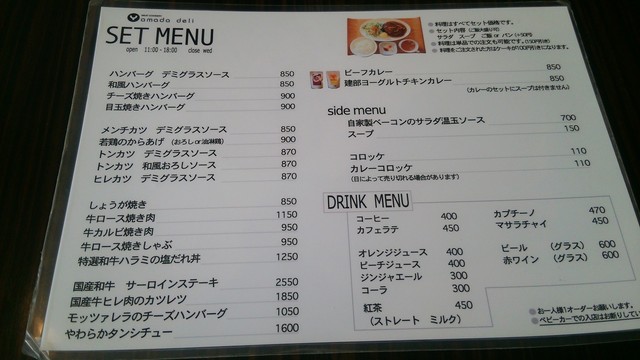 yamada deli
SET MENU
open 11:00-18:00 close wed
●料理はすべてセット価格です。
●セット内容(ご飯大盛り可)
サラダ スープ ご飯 or パン(+50円)
●料理は単品での注文も可能です。
●料理をご注文された方はケーキが100円引きになります。
ハンバーグ デミグラスソース 850
和風ハンバーグ 850
チーズ焼きハンバーグ 900
目玉焼きハンバーグ 900
メンチカツ デミグラスソース 850
若鶏のからあげ (おろしor油淋鶏) 900
トンカツ デミグラスソース 870
トンカツ 和風おろしソース 870
ヒレカツ デミグラスソース 870
しょうが焼き 850
牛ロース焼き肉 1150
牛カルビ焼き肉 950
牛ロース焼きしゃぶ 950
特選和牛ハラミの塩だれ丼 1250
国産和牛 サーロインステーキ 2550
国産牛ヒレ肉のカツレツ 1850
モッツァレラのチーズハンバーグ 1050
やわらかタンシチュー 1600
ビーフカレー 850
建部ヨーグルトチキンカレー 850
(カレーのセットにスープは付きません)
side menu
自家製ベーコンのサラダ温玉ソース 700
スープ 150
コロッケ 110
カレーコロッケ 110
(日によって売り切れる場合があります)
DRINK MENU
コーヒー 400
カフェラテ 450
オレンジジュース 400
ピーチジュース 400
ジンジャエール 300
コーラ 300
紅茶 450
(ストレート ミルク)
カプチーノ 470
マサラチャイ 450
ビール (グラス) 600
赤ワイン (グラス) 600
●お一人様1オーダーお願いします。
●ベビーカーでの入店はお断りしてい